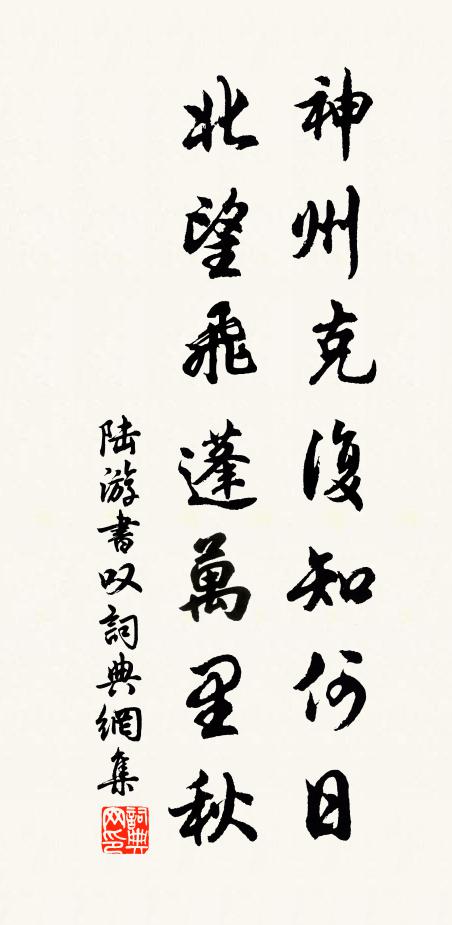 神州克復知何日
北望飛蓬萬里秋
陆游書叹詞典網集
詞典网印